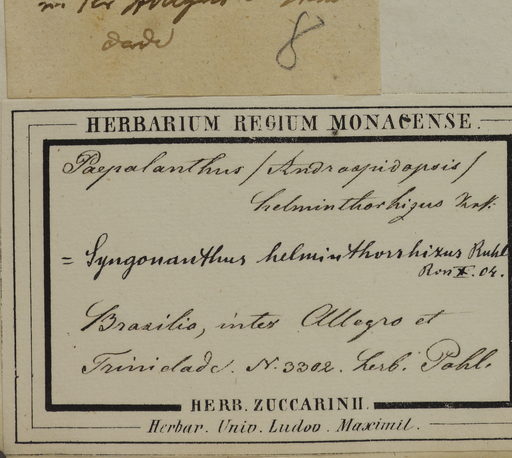 dade
8
HERBARIUM REGIUM MONACENSE.
Paepalanthus / Andraspidopsis /
helminthorhizus
= Syngonanthus helminthorrhizus Ruhl
Rev X. 04.
Brazilia, inter Allegro et
Trinidade. N. 3302. herb. Pohl.
HERB. ZUCCARINII.
Herbar. Univ. Ludov. Maximil.